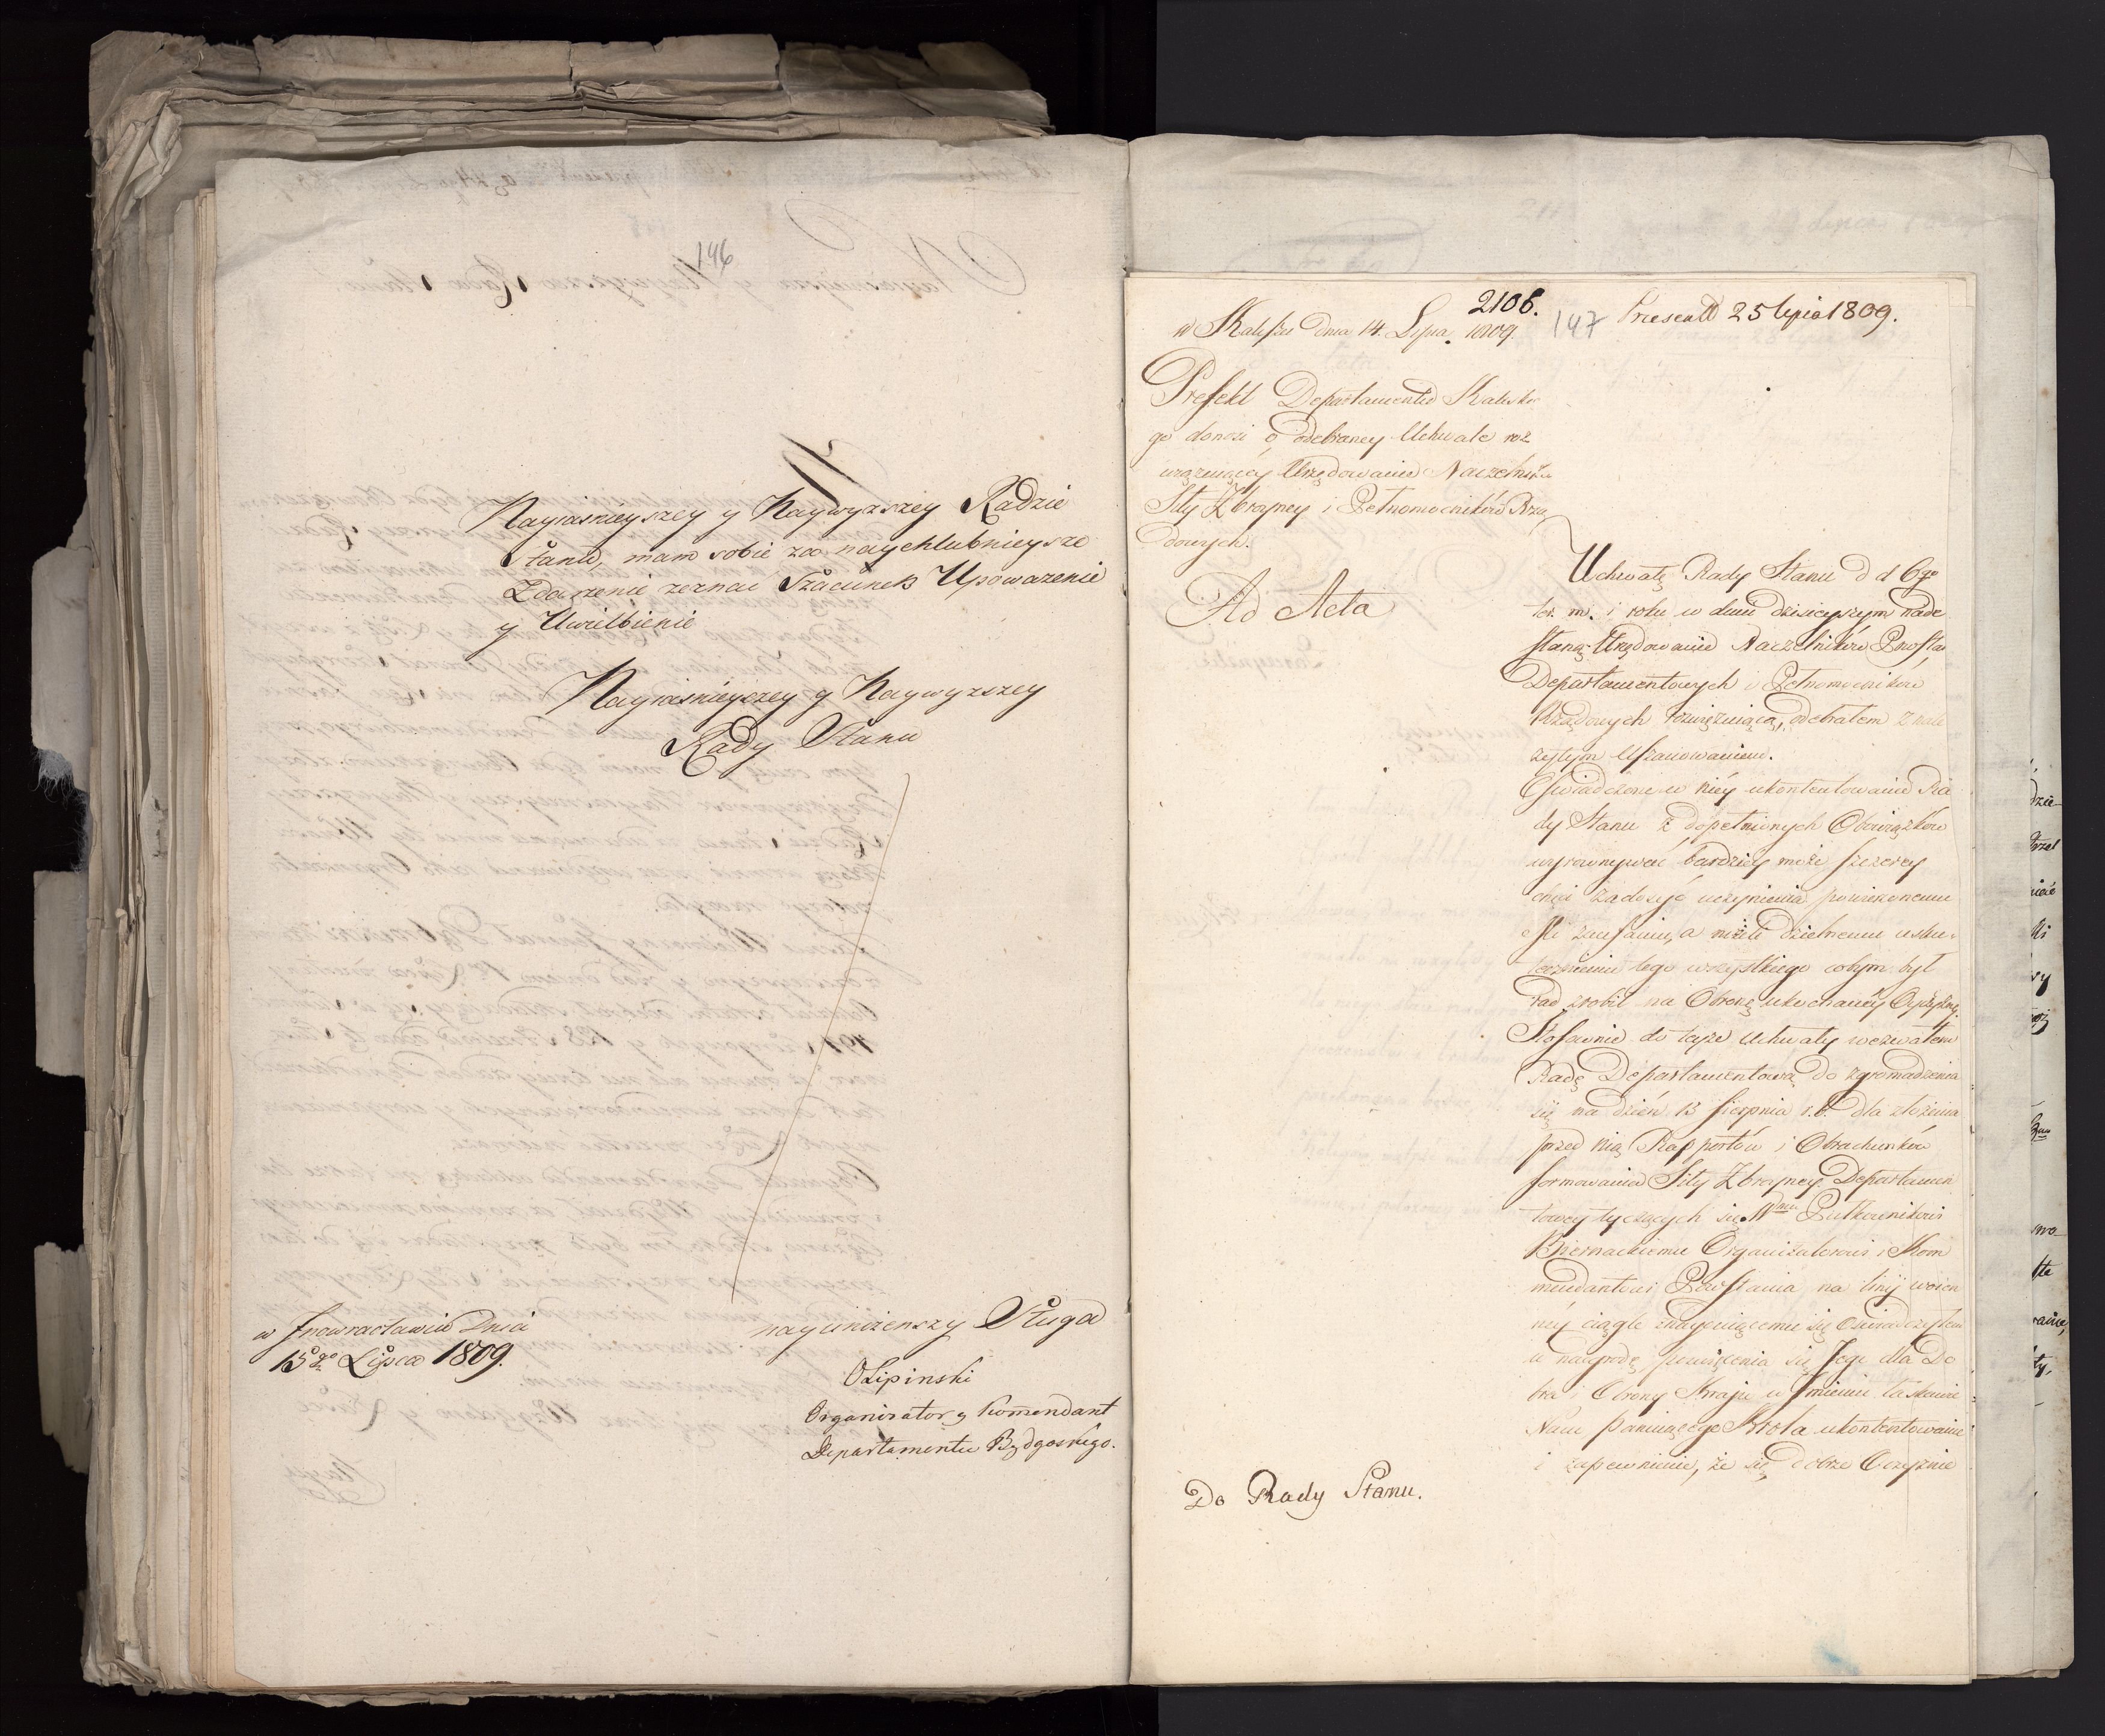 146
Nayiaśnieyszey y Naywyzszey Radzie
Stanu, mam sobie za naychlubnieysze
Zdarzenie zeznać Szacunek Upowazenie
y Uwielbienie
Nayiaśnieyszey y Naywyzszey
Rady Stanu
w Jnowracławiu Dnia
15go Lipca 1809.
nayunizenszy Sługa
OLipinski
Organizator y Komendant
Departamentu Bydgoskiego.
2106.
147
Presentt 25 lipca 1809.
w Kaliszu dnia 14. Lipca 1809.
Prefekt Departamentu Kaliskie
go donosi o odebraney Uchwale roz
wiązuiącey Urzędowanie Naczelnika
Siły Zbroyney i Pełnomocników Rzą
dowych.
Ad Acta
Uchwałę Rady Stanu d d 6go
ter. m. i roku w dniu dzisieyszym nade
słaną Urzędowanie Naczelników Powsta
Departamentowych i Pełnomocników
Rządowych rozwięzuiącą, odebrałem z nale
żytym Uszanowaniem.
Oświadczone w niéy ukontentowanie Ra
dy Stanu z dopełnionych Obowiązków
wyrownywać bardziey może szczerey
chęci zadosyć uczynienia powierzonemu
Mi zaufaniu, a niżeli dzielnemu usku-
tecznieniu tego wszystkiego cobym był
rad zrobił na Obronę ukochaney Oyczyzny.
Stosownie do teyże Uchwały wezwałem
Radę Departamentową do zgromadzenia
się na dzień 13 Sierpnia r. b. dla złożenia
przed nią Rapportów i Obrachunków
formowania Siły Zbroyney Departamen
towey tyczących się. Wmu Pułkownikowi
Biernackiemu Organizatorowi i Kom
mendantowi Powstania na linij woien
néy ciągle znayduiącemu się Oświadczyłem
w nadgrodę poswięcenia się Jego dla Do
bra i Obrony Kraju w Jmieniu łaskawie
Nam panuiącego Króla ukontentowanie
i zapewnienie, że się dobrze Oyczyznie
Do Rady Stanu.